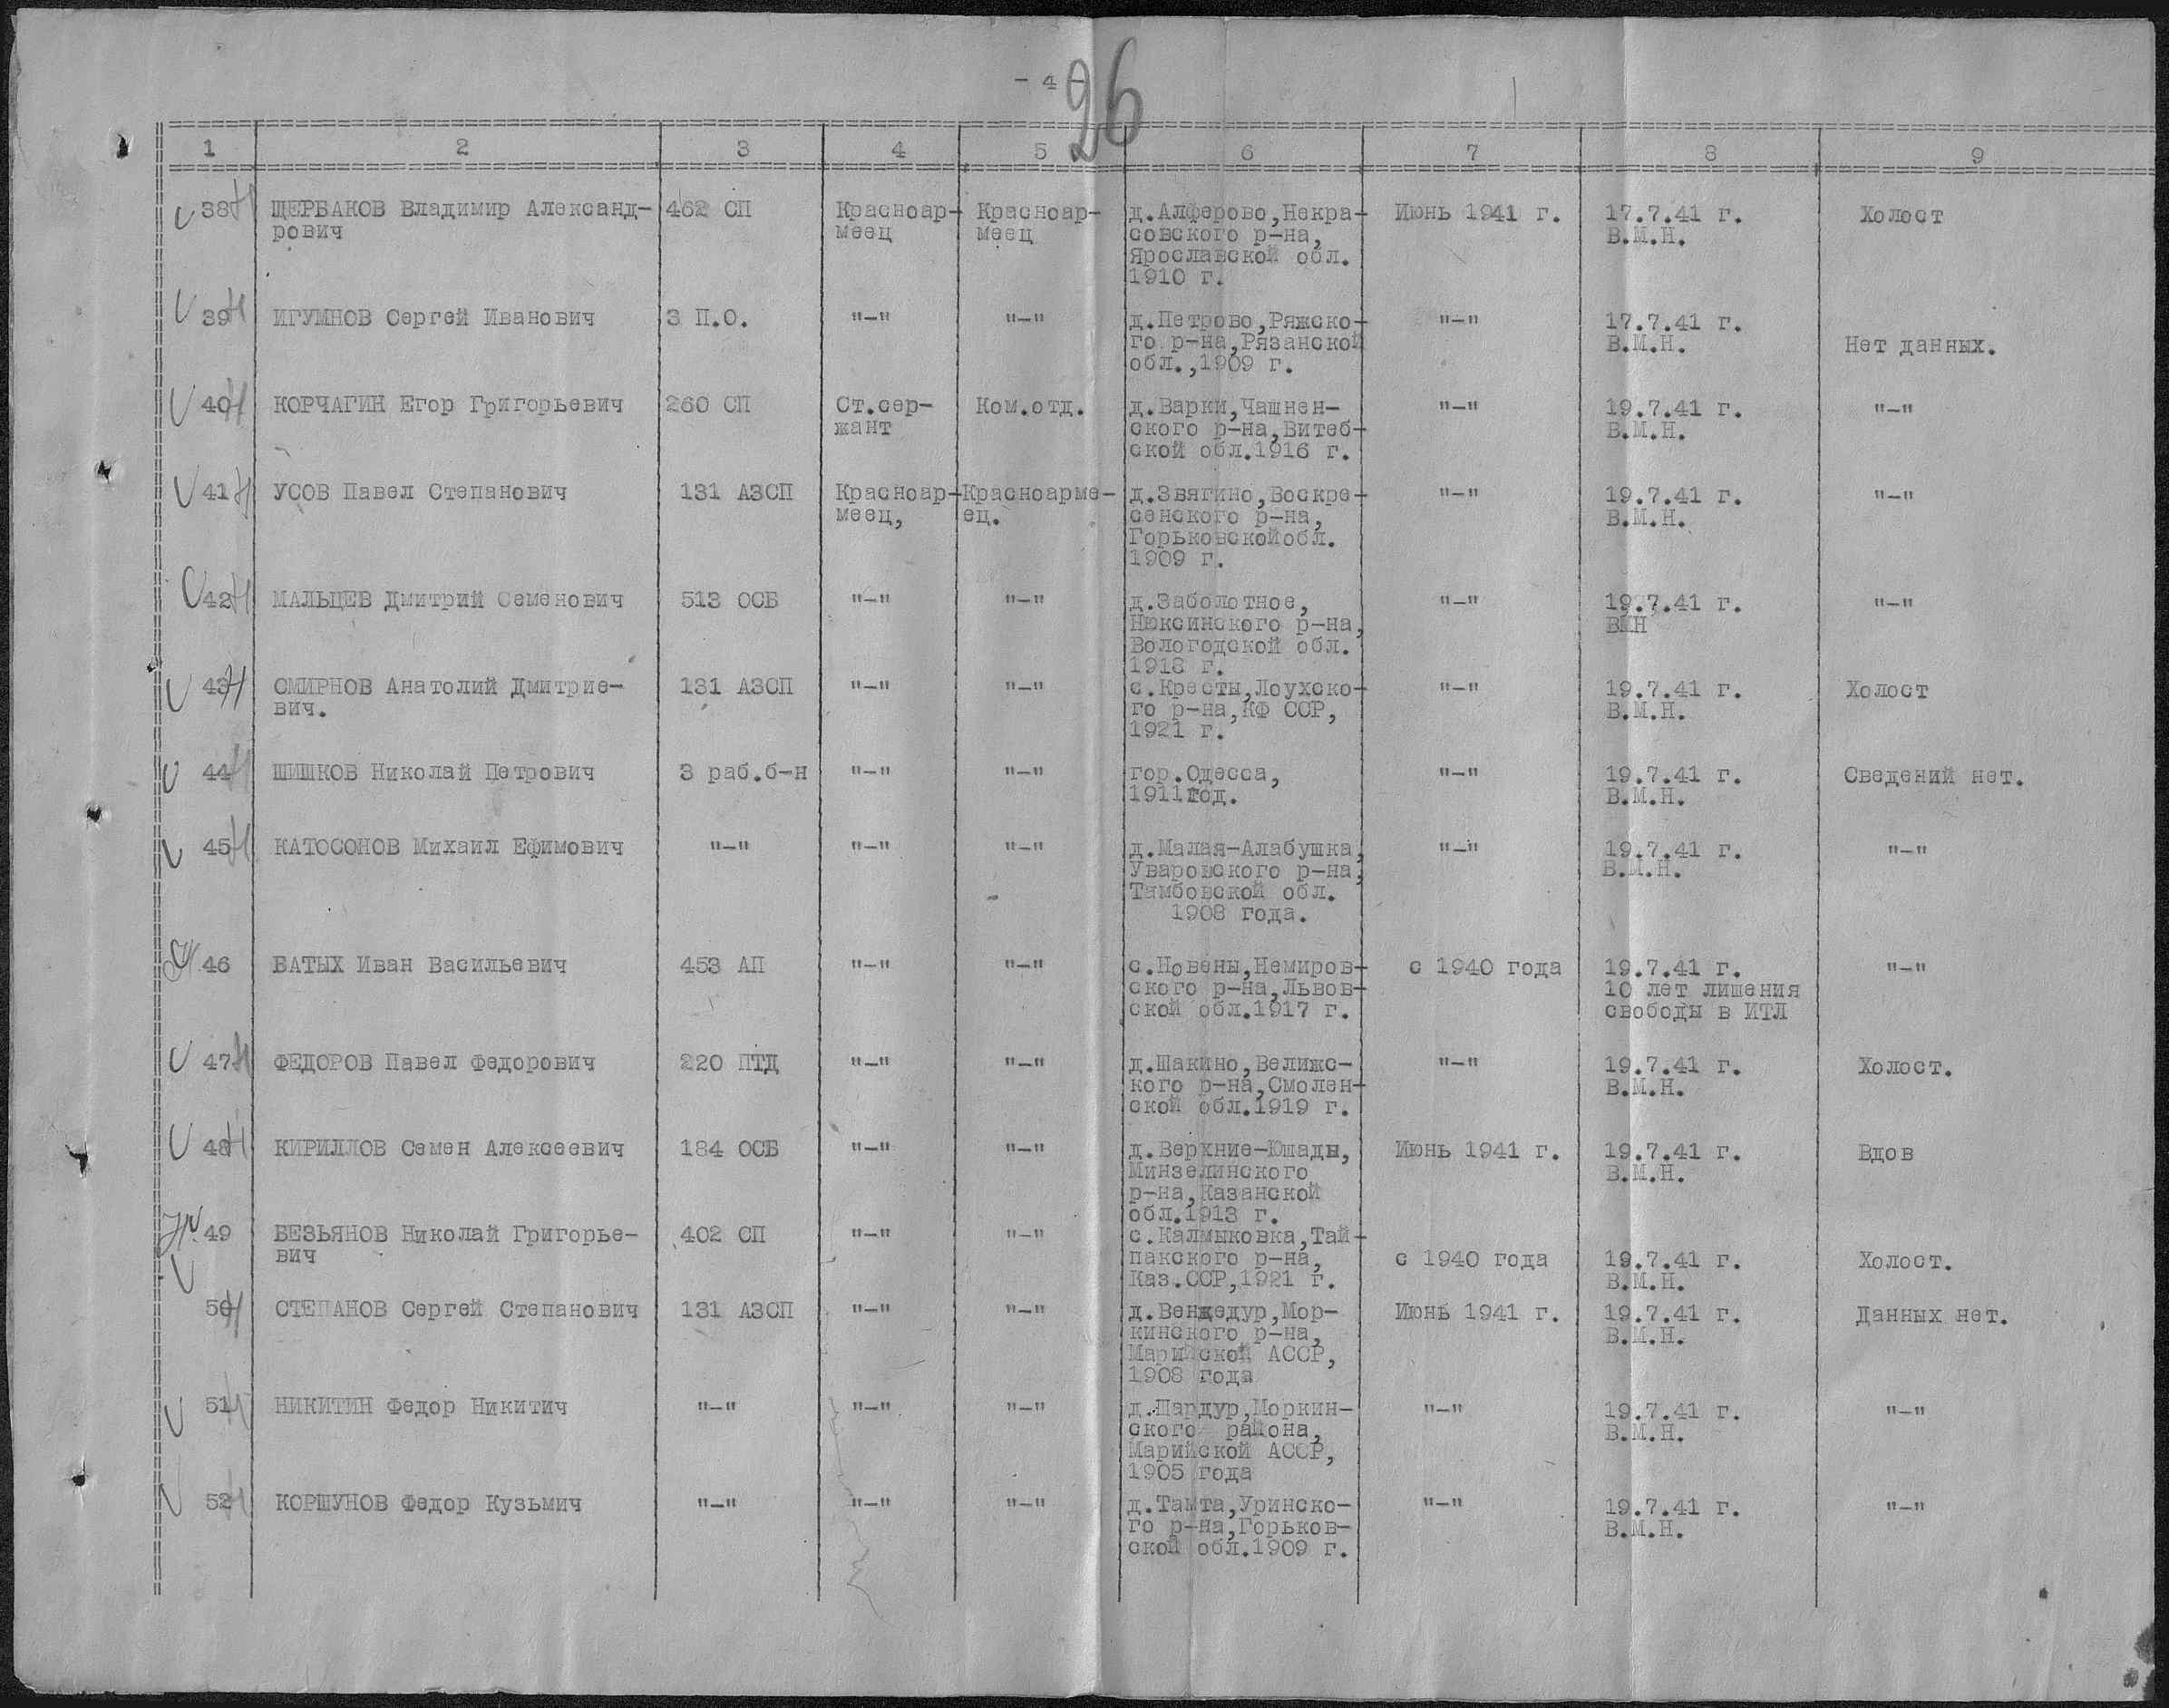 - 4 -
26
1 2 3 4 5 6 7 8 9
38 ЩЕРБАКОВ Владимир Александ- 462 СП Красноар- Красноар- д.Алферово,Некра- Июнь 1941 г. 17.7.41 г. Холост
рович меец меец совского р-на, В.М.Н.
Ярославской обл.
1910 г.
39 ИГУМНОВ Сергей Иванович 3 П.О. "-" "-" д.Петрово,Ряжско- "-" 17.7.41 г.
го р-на,Рязанской В.М.Н. Нет данных.
обл.,1909 г.
40 КОРЧАГИН Егор Григорьевич 260 СП Ст.сер- Ком.отд. д.Варки,Чашнен- "-" 19.7.41 г. "-"
жант ского р-на,Витеб- В.М.Н.
ской обл.1916 г.
41 УСОВ Павел Степанович 131 АЗСП Красноар- Красноарме- д.Звягино,Воскре- "-" 19.7.41 г. "-"
меец, ец. сенского р-на, В.М.Н.
Горьковскойобл.
1909 г.
42 МАЛЬЦЕВ Дмитрий Семенович 513 ОСБ "-" "-" д.Заболотное, "-" 19.7.41 г. "-"
Нюксинского р-на, ВМН
Вологодской обл.
1918 г.
43 СМИРНОВ Анатолий Дмитрие- 131 АЗСП "-" "-" с.Кресты,Лоухско- "-" 19.7.41 г. Холост
вич. го р-на,КФ ССР, В.М.Н.
1921 г.
44 ШИШКОВ Николай Петрович 3 раб.б-н "-" "-" гор.Одесса, "-" 19.7.41 г. Сведений нет.
1911год. В.М.Н.
45 КАТОСОНОВ Михаил Ефимович "-" "-" "-" д.Малая-Алабушка, "-" 19.7.41 г. "-"
Уваровского р-на, В.М.Н.
Тамбовской обл.
1908 года.
46 БАТЫХ Иван Васильевич 453 АП "-" "-" с.Новены,Немиров- с 1940 года 19.7.41 г. "-"
ского р-на,Львов- 10 лет лишения
ской обл.1917 г. свободы в ИТЛ
47 ФЕДОРОВ Павел Федорович 220 ПТД "-" "-" д.Шакино,Велижс- "-" 19.7.41 г. Холост.
кого р-на,Смолен- В.М.Н.
ской обл.1919 г.
48 КИРИЛЛОВ Семен Алексеевич 184 ОСБ "-" "-" д.Верхние-Юшады, Июнь 1941 г. 19.7.41 г. Вдов
Минзелинского В.М.Н.
р-на,Казанской
обл.1913 г.
49 БЕЗЬЯНОВ Николай Григорье- 402 СП "-" "-" с.Калмыковка,Тай-
вич пакского р-на, с 1940 года 19.7.41 г. Холост.
Каз.ССР,1921 г. В.М.Н.
50 СТЕПАНОВ Сергей Степанович 131 АЗСП "-" "-" д.Венжедур,Мор- Июнь 1941 г. 19.7.41 г. Данных нет.
кинского р-на, В.М.Н.
Марийской АССР,
1908 года
51 НИКИТИН Федор Никитич "-" "-" "-" д.Шардур,Моркин- "-" 19.7.41 г. "-"
ского района, В.М.Н.
Марийской АССР,
1905 года
52 КОРШУНОВ Федор Кузьмич "-" "-" "-" д.Тамта,Уринско- "-" 19.7.41 г. "-"
го р-на,Горьков- В.М.Н.
ской обл.1909 г.